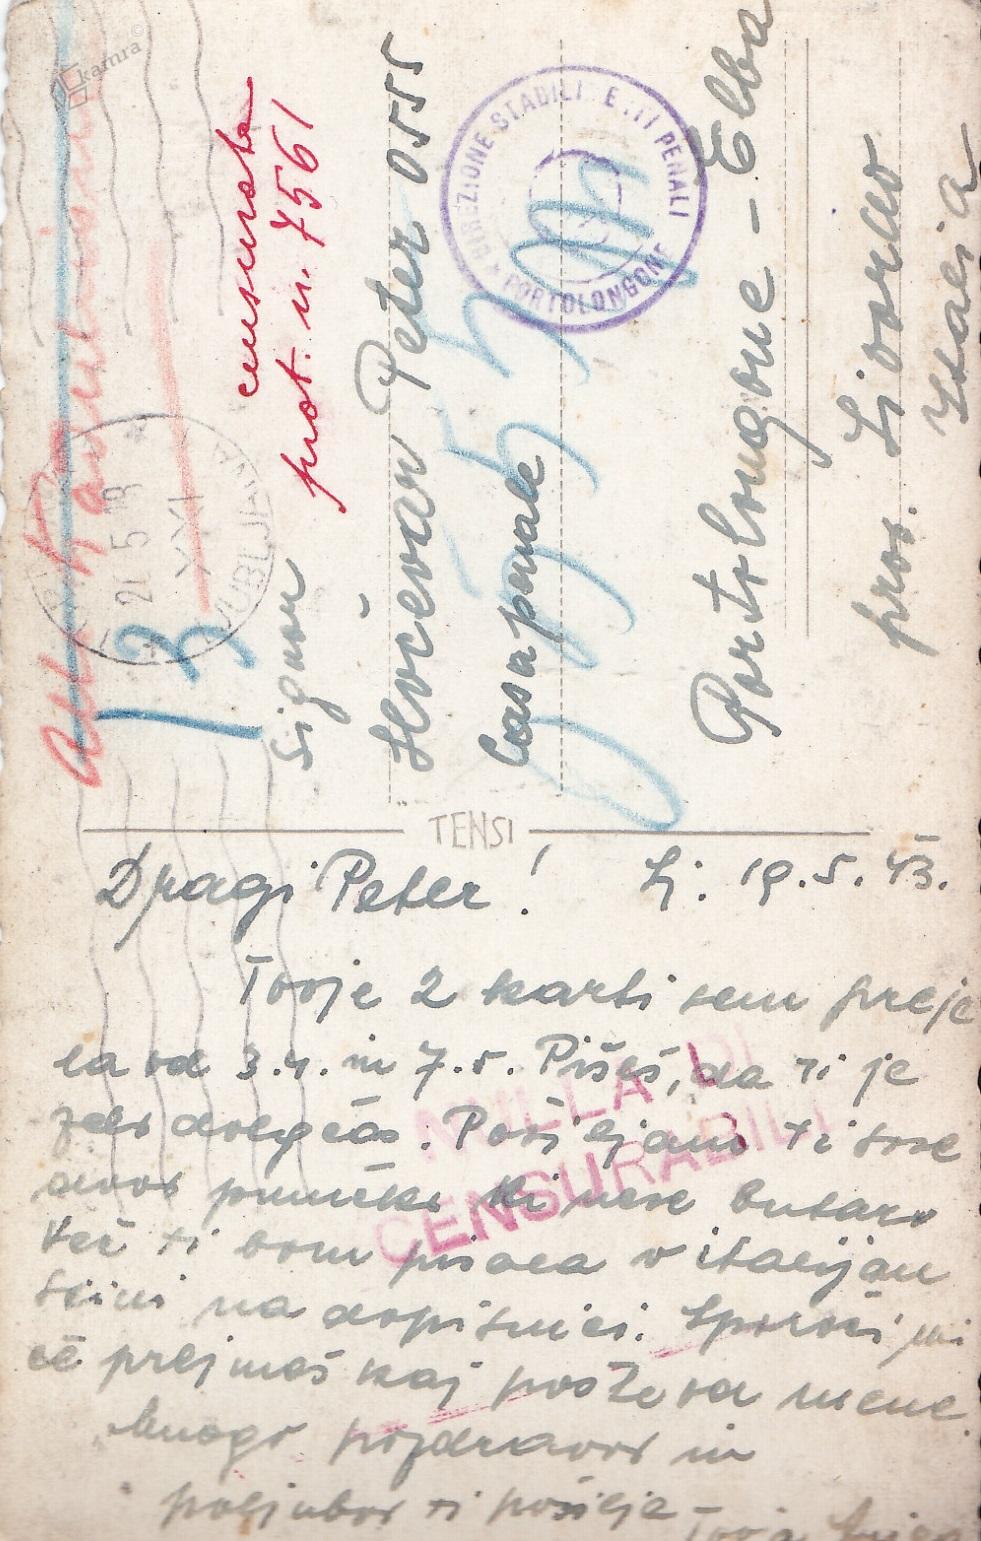 kamra
censurata
prot. n. 7561
Signor
Hočevar Peter 0555
Casa penale
Portolongone - Elba
prov. Livorno
Italia
DIREZIONE STABILIMENTI PENALI
PORTOLONGONE
5 43
XXI
LJUBLJANA
13
TENSI
Dragi Peter! Lj. 19.5.43.
Tvoje 2 karti sem preje
la od 3.4. in 7.5. Pišeš, da ti je
zelo dolgčas. Pošiljam ti
ki nese butaro
Več ti bom pisala v italijan
ščini na dopisnici. Sporoči mi
če prejmeš kaj pošte od mene
Mnogo pozdravov in
poljubov ti pošilja -
NULLA DI
CENSURABILE